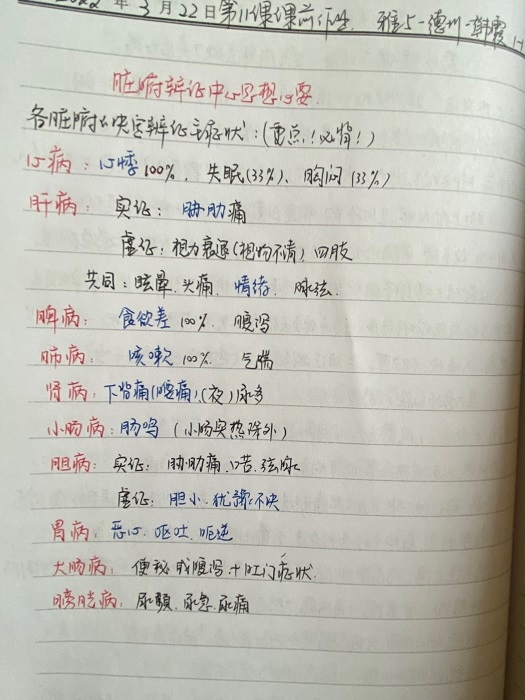 2022年3月22日第11课课前作业 雅5-德州-韩霞
脏腑辨证中心思想心要
各脏腑公决定辨证主症状:(重点!必背!)
心病:心悸100%、失眠(33%)、胸闷(33%)
肝病:实证:胁肋痛
虚证:视力衰退(视物不清)四肢
共同:眩晕.头痛.情绪.脉弦.
脾病:食欲差100%.腹泻
肺病:咳嗽100%.气喘
肾病:下背痛(腰痛),(夜)尿多
小肠病:肠鸣(小肠实热除外)
胆病:实证:胁肋痛.口苦.弦脉
虚证:胆小.犹豫不决
胃病:恶心.呕吐.呃逆
大肠病:便秘或腹泻+肛门症状.
膀胱病:尿频.尿急.尿痛